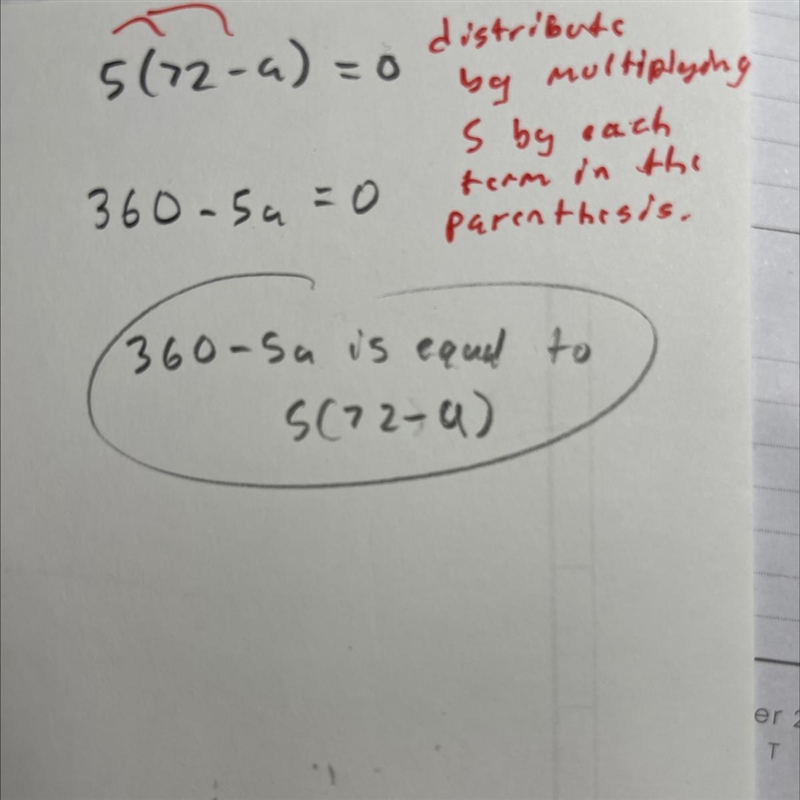 5(72-a) = 0
distribute
by multiplying
5 by each
term in the
parenthesis.
360-5a = 0
360-5a is equal to
5(72-a)
er 2
T